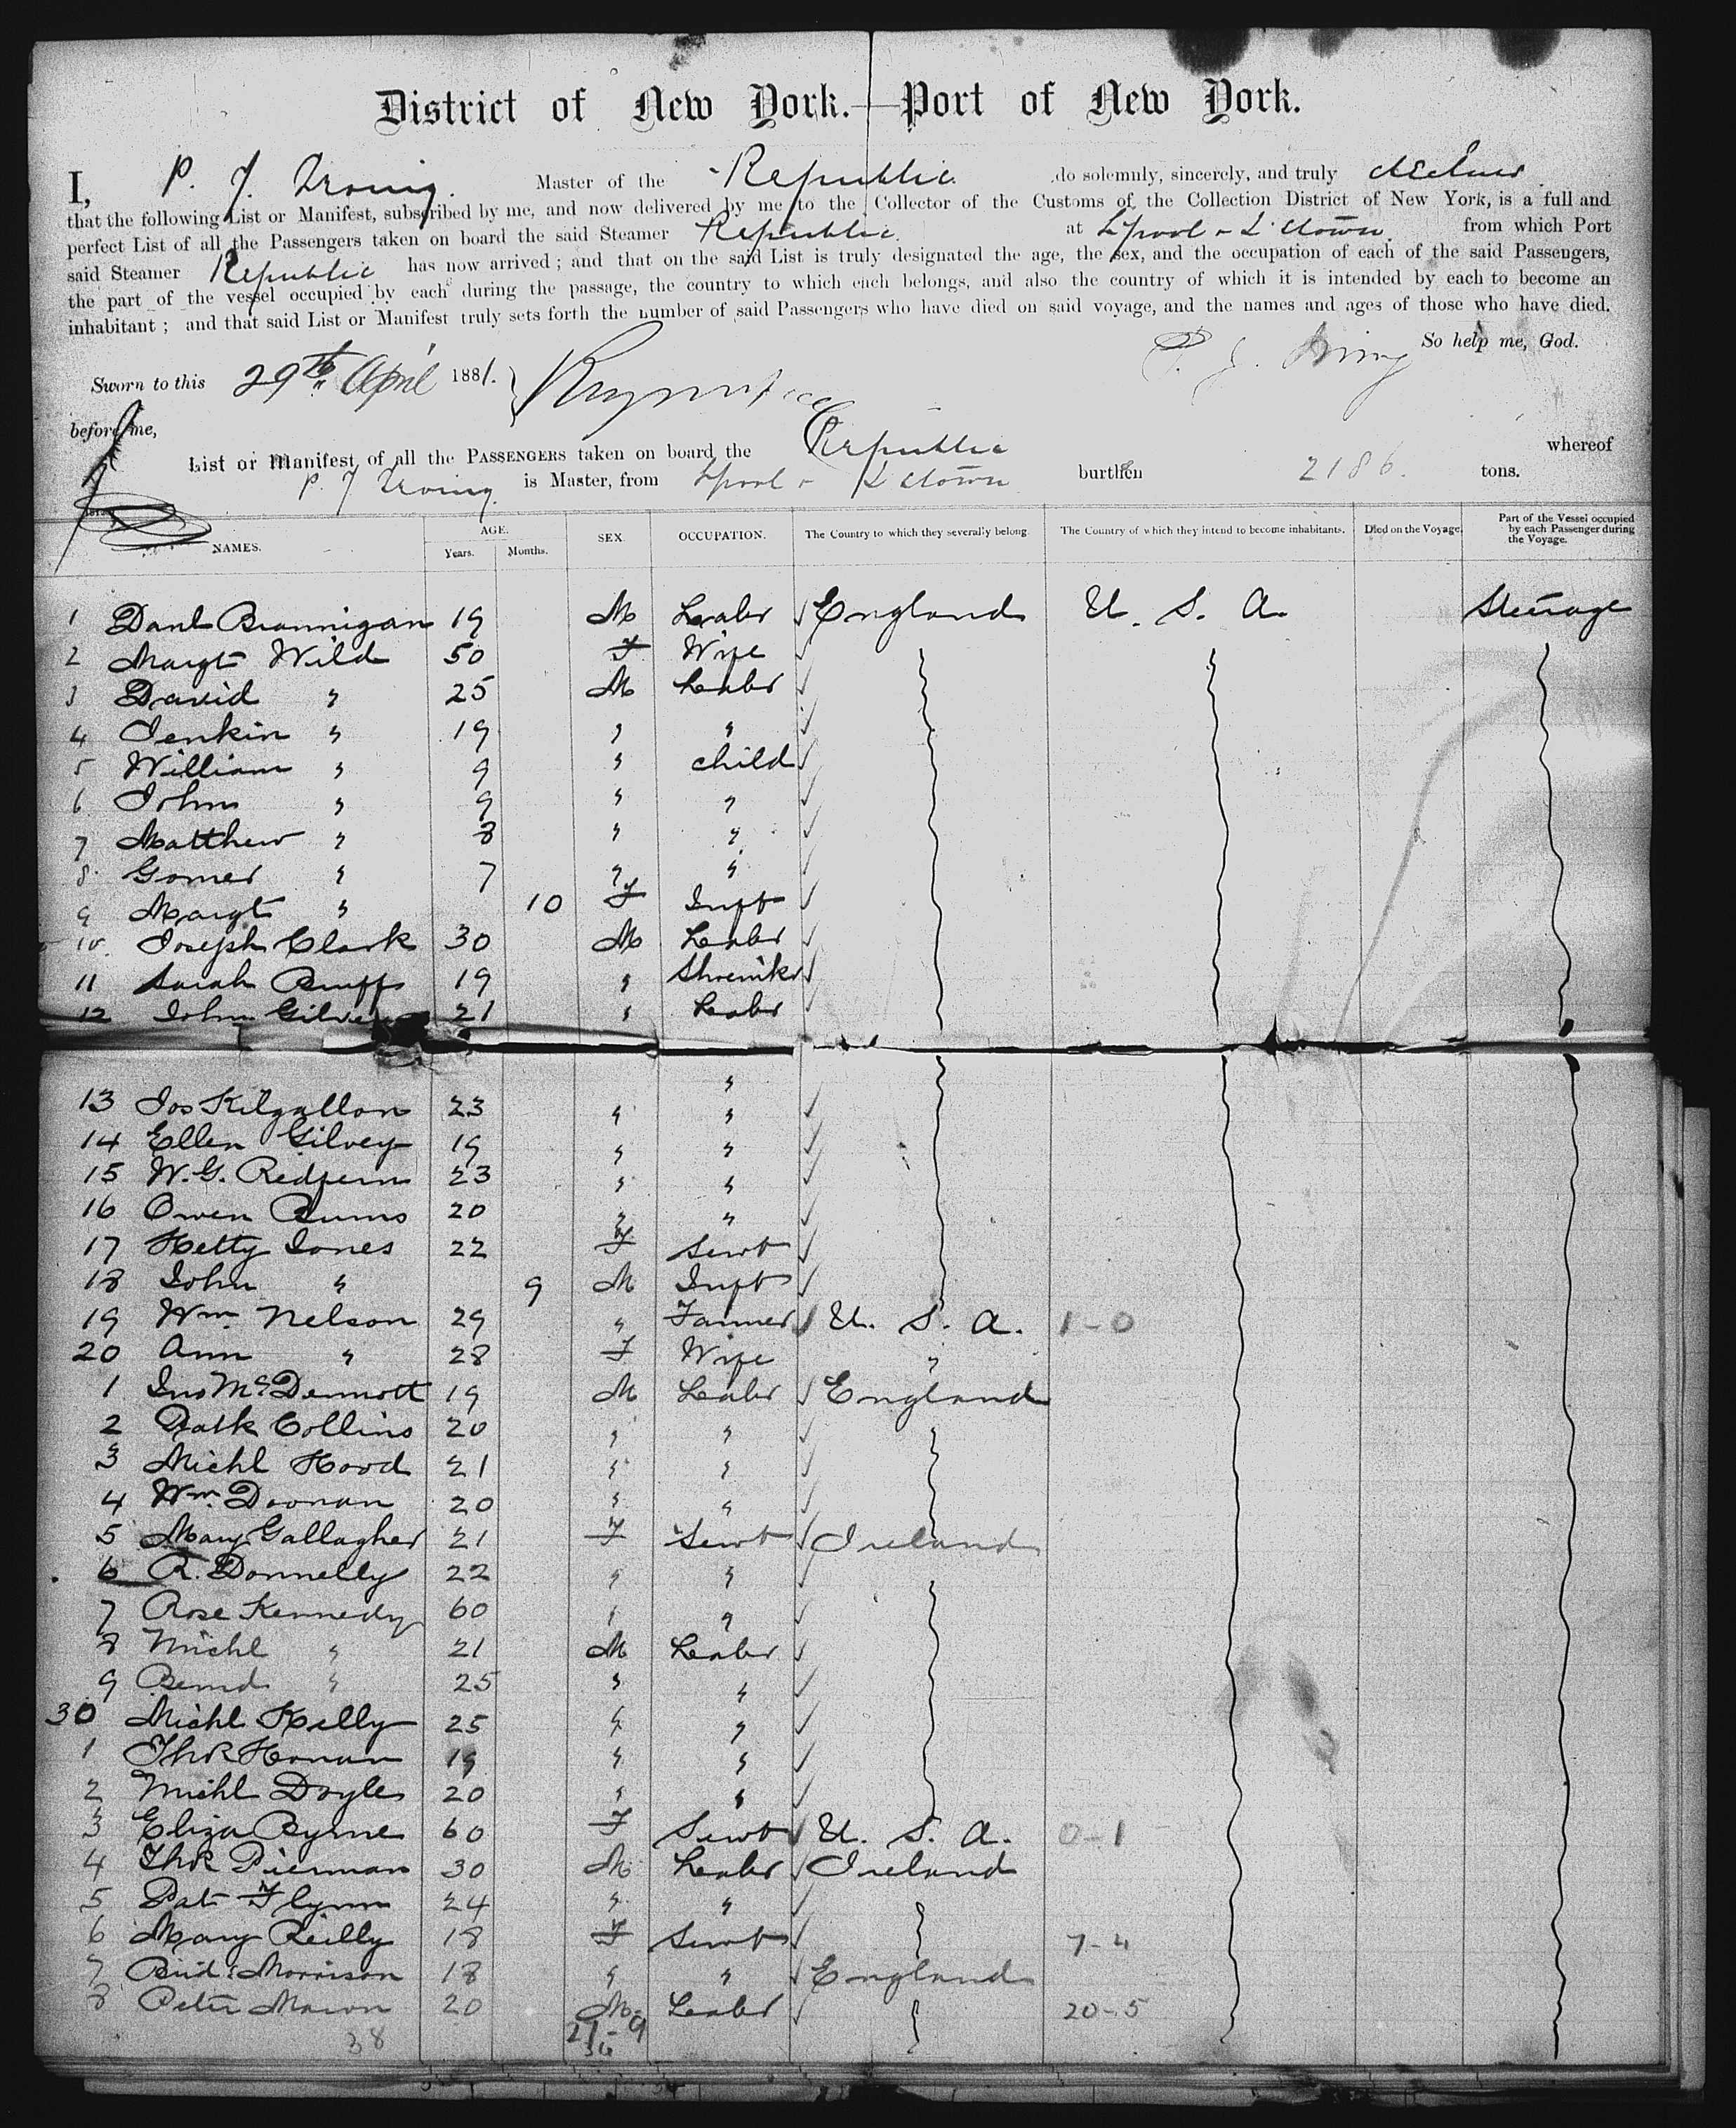 District of New York.—Port of New York.
I, P. J. Irving. Master of the Republic do solemnly, sincerely, and truly
that the following List or Manifest, subscribed by me, and now delivered by me to the Collector of the Customs of the Collection District of New York, is a full and
perfect List of all the Passengers taken on board the said Steamer Republic at L'pool & Q'town. from which Port
said Steamer Republic has now arrived; and that on the said List is truly designated the age, the sex, and the occupation of each of the said Passengers,
the part of the vessel occupied by each during the passage, the country to which each belongs, and also the country of which it is intended by each to become an
inhabitant; and that said List or Manifest truly sets forth the number of said Passengers who have died on said voyage, and the names and ages of those who have died.
So help me, God.
Sworn to this 29th April 1881. P. J. Irving
before me,
List or Manifest of all the PASSENGERS taken on board the Republic whereof
P. J Irving is Master, from L'pool & Q'town burthen 2186. tons.
NAMES. AGE. Years. Months. SEX. OCCUPATION. The Country to which they severally belong The Country of which they intend to become inhabitants. Died on the Voyage. Part of the Vessel occupied by each Passenger during the Voyage.
1 Danl Brannigan 19 M Labr England U. S. A. Steerage
2 Margt Wild 50 F Wife
3 David " 25 M Labr
4 Jenkin " 19 " "
5 William " 9 " child
6 John " 9 " "
7 Matthew " 8 " "
8 Gomer " 7 " "
9 Margt " 10 F Inft
10 Joseph Clark 30 M Labr
11 Sarah 19 "
12 John 21 " Labr
"
13 Jos Kilgallon 23 " "
14 Ellen Gilvey 19 " "
15 W. G. Redfern 23 " "
16 Owen Burns 20 " "
17 Hetty Jones 22 F Servt
18 John " 9 M Inft
19 Wm. Nelson 29 " Farmer U. S. A. 1-0
20 Ann " 28 F Wife "
1 Jno McDermott 19 M Labr England
2 Patk Collins 20 " "
3 Michl Hood 21 " "
4 Wm. Doonan 20 " "
5 Mary Gallagher 21 F Servt Ireland
6 R. Donnelly 22 " "
7 Rose Kennedy 60 " "
8 Michl " 21 M Labr
9 Bernd " 25 " "
30 Michl Kelly 25 " "
1 Thos Honan 19 " "
2 Michl Doyle 20 " "
3 Eliza Byrne 60 F Servt U. S. A. 0-1
4 Thos 30 M Labr Ireland
5 Pat Flynn 24 " "
6 Mary Reilly 18 F Servt 7-4
7 Brid: Morrison 18 " " England
8 Peter 20 M Labr 20-5
38 27-9
36